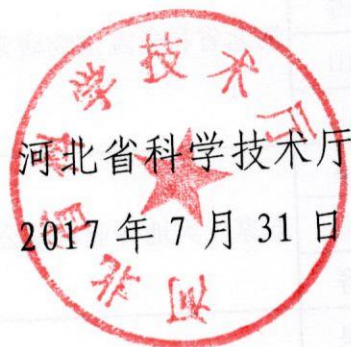 河北省科学技术厅
2017 年 7 月 31 日
河北省科学技术厅